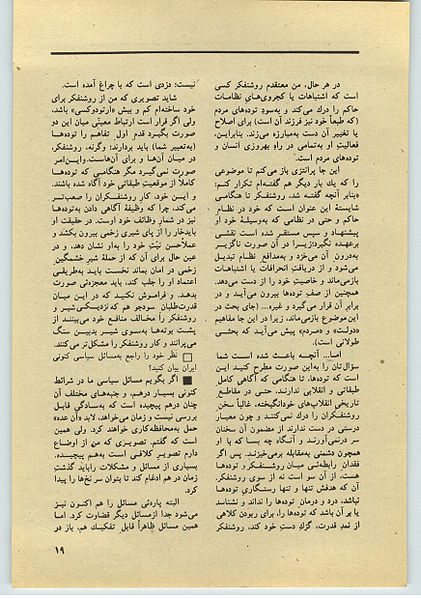 در هر حال، من معتقدم روشنفکر کسی
است که اشتباهات یا کجروی‌های نظامات
حاکم را درك می‌کند و به‌سود توده‌های مردم
(که طبعاً خود نیز فرزند آن است) برای اصلاح
یا تغییر آن دست به‌مبارزه می‌زند. بنابراین،
فعالیت او به‌تمامی در راه بهروزی انسان و
توده‌های مردم است.
این جا پرانتزی باز می‌کنم تا موضوعی
را که یك بار دیگر هم گفته‌ام تکرار کنم:
«بنابر آنچه گفته شد، روشنفکر تا هنگامی
شایستهٔ این عنوان است که خود در نظام
حاکم و حتی در نظامی که به‌وسیلهٔ خود او
پیشنهاد و سپس مستقر شده است نقشی
برعهده نگیرد، زیرا در آن صورت ناگزیر
به‌درون آن می‌خزد و به‌مدافع نظام تبدیل
می‌شود و از دریافتِ انحرافات یا اشتباهات
بازمی‌ماند و خاصیتِ خود را از دست می‌دهد.
همچنین از صف توده‌ها بیرون می‌آید و در
برابر آن قرار می‌گیرد و غیره... (جای بحث در
این موضوع بازمی‌ماند، زیرا در این جا مفاهیم
«دولت» و «مردم» پیش می‌آید که بحثی
طولانی است).
اما... آنچه باعث شده است شما
سؤال‌تان را به‌این صورت مطرح کنید این
است که توده‌ها، تا هنگامی که آگاهی کامل
طبقاتی و انقلابی ندارند، حتی در مقاطع
تاریخی انقلاب‌های خودانگیخته، غالباً سخن
روشنفکران را درك نمی‌کنند و چون معیار
درستی در دست ندارند از مضمون آن سخنان
سر درنمی‌آورند و آنگاه چه بسا که با او
همچون دشمنی به‌مقابله برمی‌خیزند. پس اگر
فقدان رابطه‌ئی میان روشنفکر و توده‌ها
هست، از آن سو است نه از سوی روشنفکر.
آن که هدفش تنها و تنها رستگاری توده‌ها
نباشد، درد و درمان توده‌ها را نداند و نشناسد
یا بر آن باشد که توده‌ها را، برای ربودن کلاهی
از نمد قدرت، گزكِ دستِ خود کند، روشنفکر
نیست؛ دزدی است که با چراغ آمده است.
شاید تصویری که من از روشنفکر برای
خود ساخته‌ام کم و بیش «ارتودوکسی» باشد،
ولی اگر قرار است ارتباط معینی میان این دو
صورت بگیرد قدم اول تفاهم را توده‌ها
(به‌تعبیر شما) باید بردارند؛ وگرنه، روشنفکر،
در میان آن‌ها و برای آن‌هاست. واین‌امر
صورت نمی‌گیرد مگر هنگامی که توده‌ها
کاملاً از موقعیتِ طبقاتی خود آگاه شده باشند.
و این خود، کار روشنفکران را صعب‌تر
می‌کند، چرا که وظیفهٔ آگاهی دادن به‌توده‌ها
نیز در شمار وظائف خود اوست. در حقیقت او
باید خار را از پای شیری زخمی بیرون بکشد و
عملاً حسن نیّتِ خود را به‌او نشان دهد، و در
عین حال برای آن که از حملهٔ شیر خشمگین
زخمی در امان بماند نخست باید به‌طریقی
اعتماد او را جلب کند، باید معجزه‌ئی صورت
بدهد. و فراموش نکنید که در این میان
قدرت‌طلبان سودجو هم که نزدیکی شیر و
روشنفکر را مخالف منافع خود می‌بینند از
پشت بوته‌ها به‌سوی شیر بدبین سنگ
می‌پرانند و کار روشنفکر را مشکل‌تر می‌کنند.
□ نظر خود را راجع به‌مسائل سیاسی کنونی
ایران بیان کنید؟
■ اگر بگویم مسائل سیاسی ما در شرائط
کنونی بسیار درهم، و جنبه‌های مختلف آن
چنان درهم پیچیده است که به‌سادگی قابل
بررسی نیست و زمان می‌خواهد، لابد «آن عده
حمل به‌محافظه‌کاری خواهند کرد. ولی همین
است که گفتم. تصویری که من از اوضاع
دارم تصویر کلافی است به‌هم پیچیده.
بسیاری از مسائل و مشکلات را باید گذشتِ
زمان در هم ادغام کند تا بتوان سر نخ‌ها را پیدا
کرد.
البته پاره‌ئی مسائل را هم اکنون نیز
می‌شود جدا از مسائل دیگر قضاوت کرد. اما
همین مسائل ظاهراً قابل تفکیك هم، باز در
۱۹